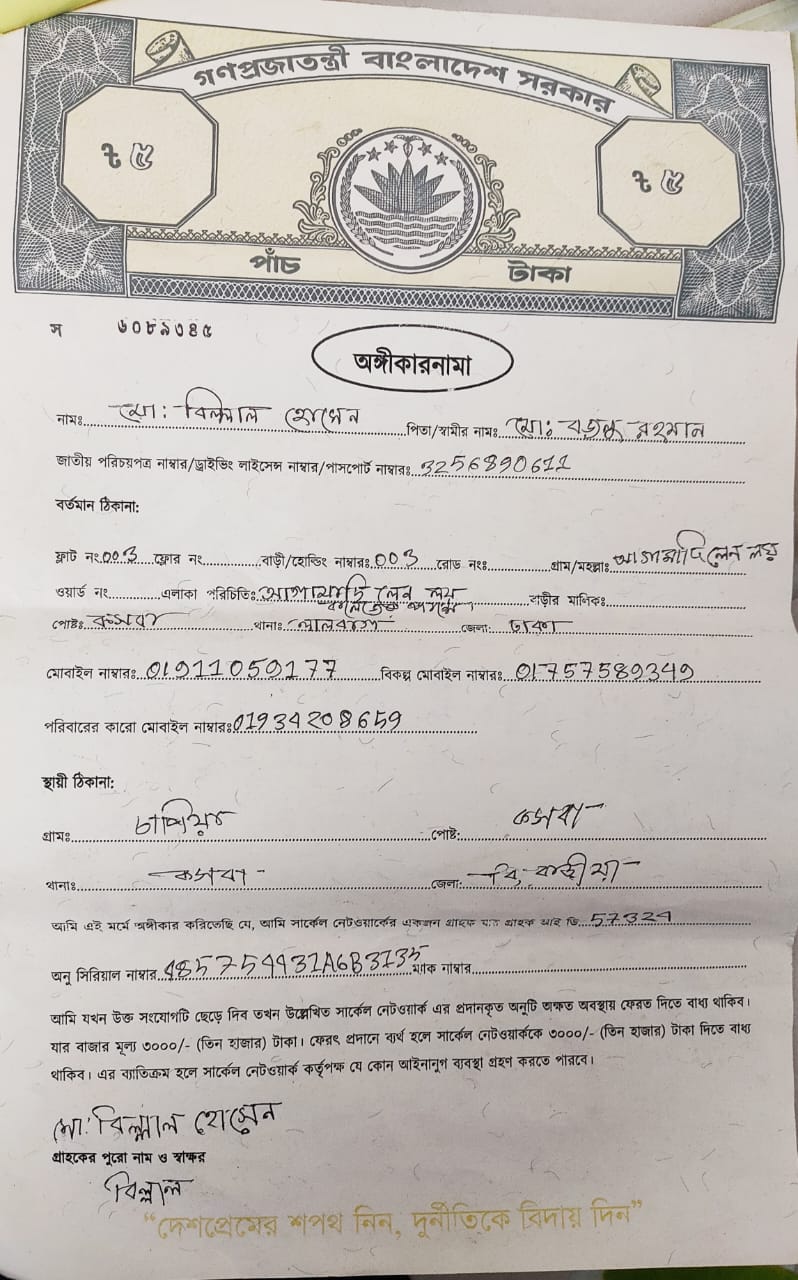 গণপ্রজাতন্ত্রী বাংলাদেশ সরকার
৳ ৫ ৳ ৫
পাঁচ টাকা
স ৬০৮৯৩৪৫
অঙ্গীকারনামা
নামঃ মো: বিল্লাল হোসেন পিতা/স্বামীর নামঃ মো: বজলু রহমান
জাতীয় পরিচয়পত্র নাম্বার/ড্রাইভিং লাইসেন্স নাম্বার/পাসপোর্ট নাম্বারঃ 3256890611
বর্তমান ঠিকানা:
ফ্লাট নং 003 ফ্লোর নং বাড়ী/হোল্ডিং নাম্বারঃ 003 রোড নংঃ গ্রাম/মহল্লাঃ
ওয়ার্ড নং এলাকা পরিচিতিঃ বাড়ীর মালিকঃ
পোষ্টঃ কসবা থানাঃ লালবাগ জেলা: ঢাকা
মোবাইল নাম্বারঃ 01911059177 বিকল্প মোবাইল নাম্বারঃ 01757589349
পরিবারের কারো মোবাইল নাম্বারঃ 01934208659
স্থায়ী ঠিকানা:
গ্রামঃ পোষ্ট: কসবা
থানাঃ কসবা জেলা: বি, বাড়ীয়া
আমি এই মর্মে অঙ্গীকার করিতেছি যে, আমি সার্কেল নেটওয়ার্কের একজন গ্রাহক যার গ্রাহক আই ডি 57324
অনু সিরিয়াল নাম্বার 485754431A6B3135 ম্যাক নাম্বার
আমি যখন উক্ত সংযোগটি ছেড়ে দিব তখন উল্লেখিত সার্কেল নেটওয়ার্ক এর প্রদানকৃত অনুটি অক্ষত অবস্থায় ফেরত দিতে বাধ্য থাকিব।
যার বাজার মূল্য ৩০০০/- (তিন হাজার) টাকা। ফেরৎ প্রদানে ব্যর্থ হলে সার্কেল নেটওয়ার্ককে ৩০০০/- (তিন হাজার) টাকা দিতে বাধ্য
থাকিব। এর ব্যতিক্রম হলে সার্কেল নেটওয়ার্ক কর্তৃপক্ষ যে কোন আইনানুগ ব্যবস্থা গ্রহণ করতে পারবে।
মো: বিল্লাল হোসেন
গ্রাহকের পুরো নাম ও স্বাক্ষর
বিল্লাল
“দেশপ্রেমের শপথ নিন, দুর্নীতিকে বিদায় দিন”